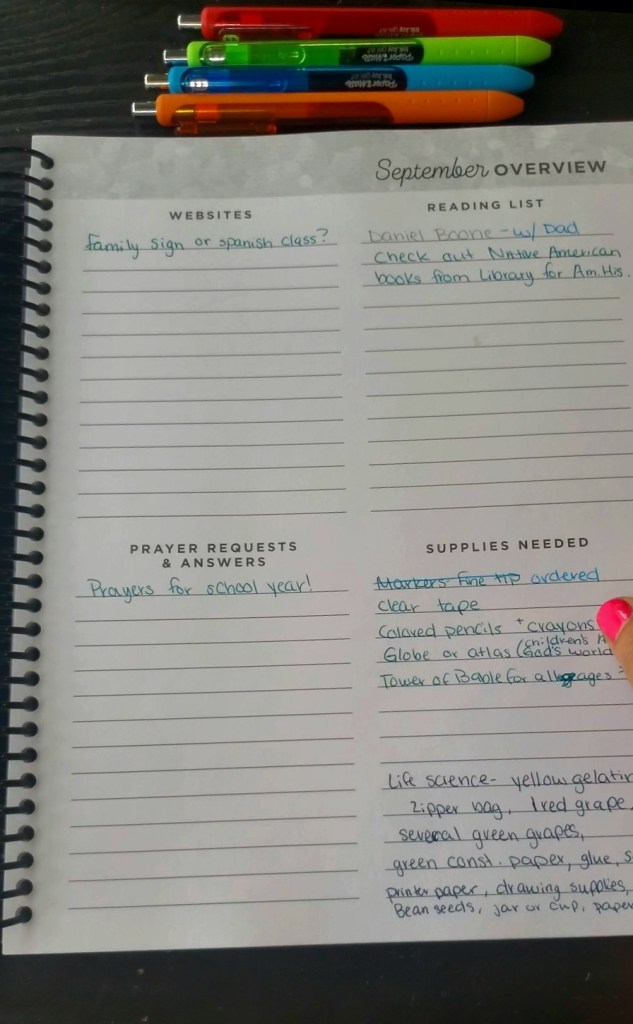 September OVERVIEW
WEBSITES
family sign or spanish class?
READING LIST
Daniel Boone - w/ Dad
check out Native American
books from Library for Am. His.
PRAYER REQUESTS
& ANSWERS
Prayers for school year!
SUPPLIES NEEDED
Markers fine tip ordered
clear tape
Colored pencils + crayons
Globe or atlas (children's
God's world
Tower of Bable for all ages
Life science - yellow gelatin
zipper bag, 1 red grape,
several green grapes,
green const. paper, glue, s
printer paper, drawing supplies,
Bean seeds, jar or cup, paper